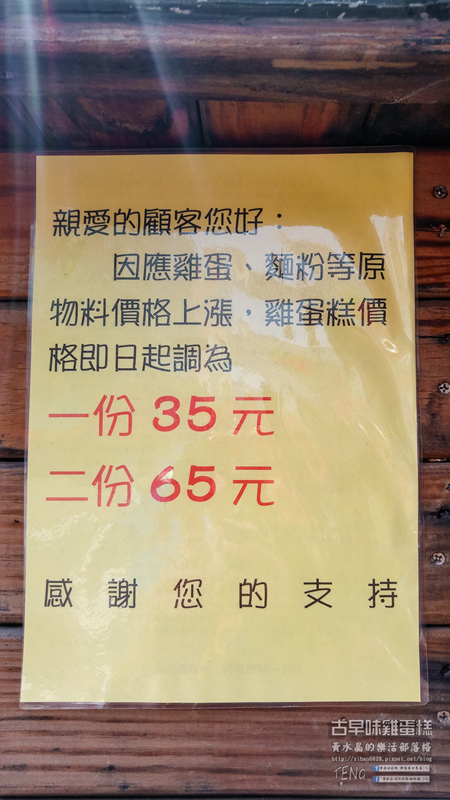 親愛的顧客您好：
因應雞蛋、麵粉等原
物料價格上漲，雞蛋糕價
格即日起調為
一份 35 元
二份 65 元
感謝您的支持
古早味雞蛋糕
黃水晶的樂活部落格
http://yihan0828.pixnet.net/blog
TENG